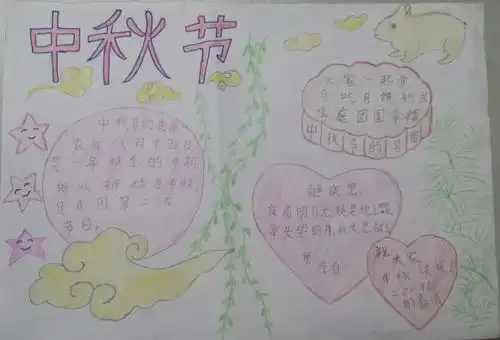 中秋节
中秋节的由来
农历八月十五日
一年秋季的中期
所以被称为中秋
是我国第二大
节日。
大家一起赏
月吃月饼
家庭团圆幸福
中秋节的习俗
静夜思
床前明月光,疑是地上霜。
举头望明月,低头思故
唐 李白
祝大家
中秋 快乐!